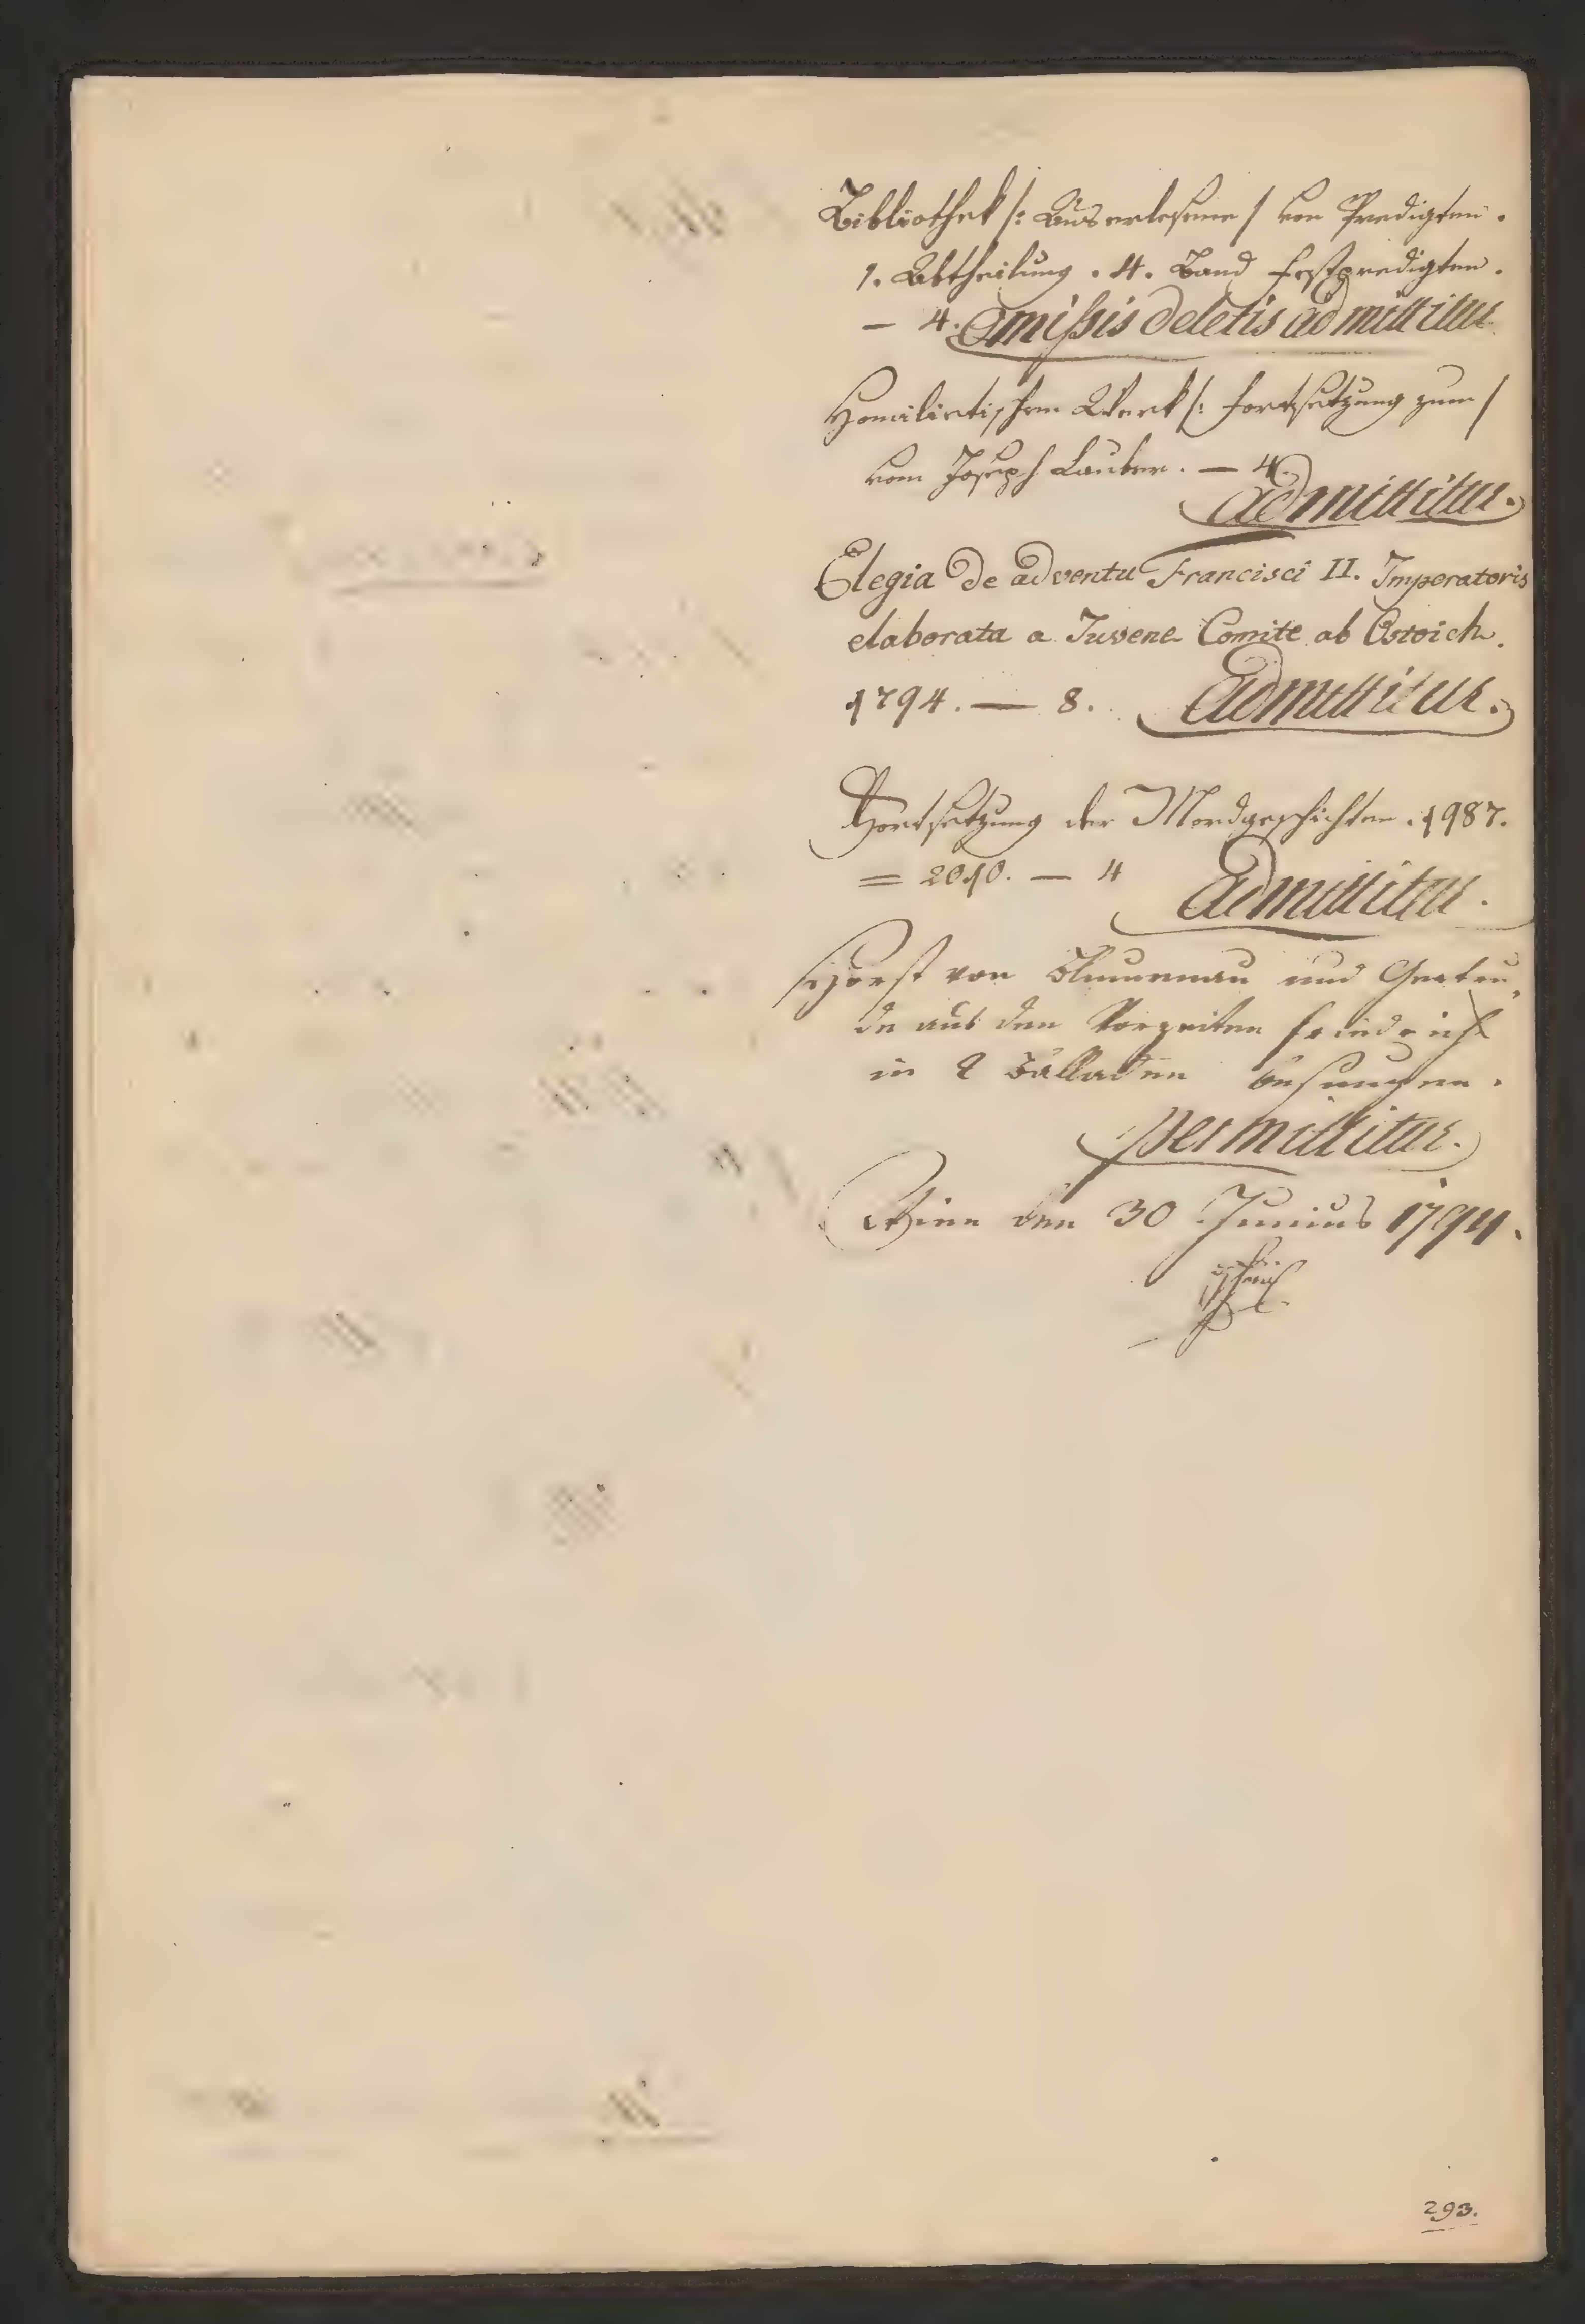 Bibliothek /: Auserlesene / von Predigten.
1. Abtheilung. 4. Band Festpredigten.
— 4. Omißis deletis admittitur
Homiletischen Werk /: Fortsetzung zum /
vom Joseph Lauber. — 4.
admittitur.
Elegia de adventu Francisci II. Imperatoris
elaborata a Juvene Comite ab Ostoich.
1794. — 8. Admittitur.
Fortsetzung der Mordgeschichten. 1987.
= 2010. — 4 Admittitur.
Horst von und Gertru„
de aus den Vorzeiten Friedrich
in 2 Balladen besungen.
permittitur.
Wien den 30 Junius 1794.
293.